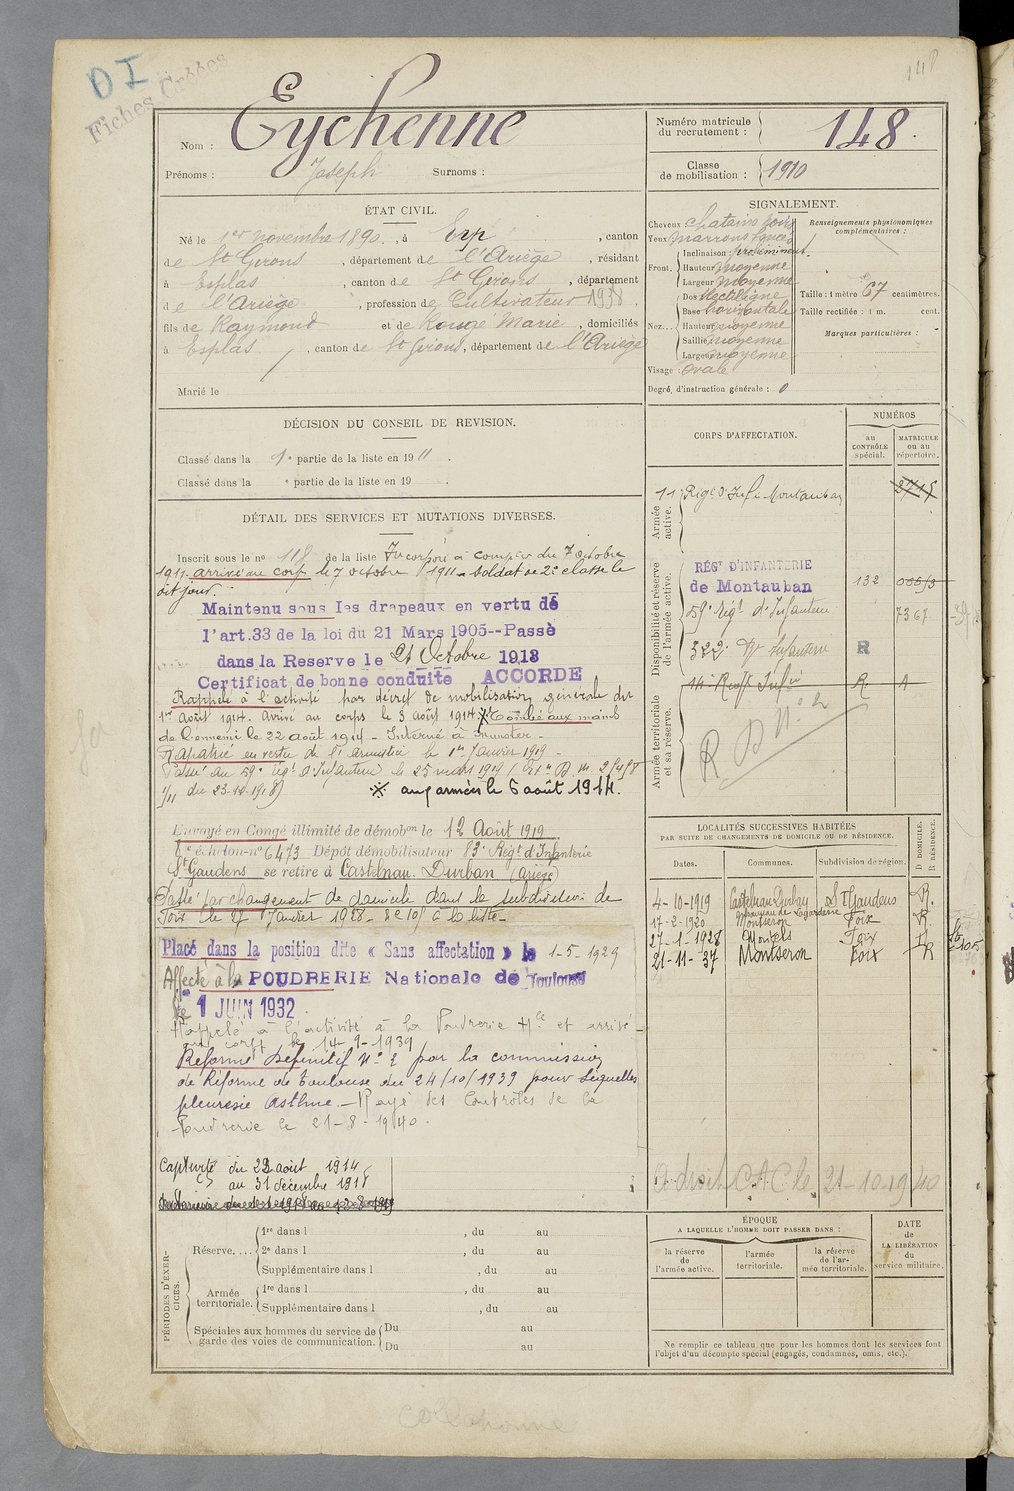 DI
Fiches Créées
148
Nom : Eychenne
Prénoms : Joseph Surnoms :
Numéro matricule du recrutement : 148.
Classe de mobilisation : 1910
ÉTAT CIVIL.
Né le 1er novembre 1890, à Erp, canton
de St Girons, département de l'Ariège, résidant
à Esplas, canton de St Girons, département
de l'Ariège, profession de Cultivateur 1938
fils de Raymond et de Rougé Marie, domiciliés
à Esplas, canton de St Girons, département de l'Ariège
Marié le
SIGNALEMENT.
Cheveux chatains
Yeux marrons
Front. Inclinaison proéminent.
Hauteur moyenne
Largeur moyenne
Nez... Dos rectiligne
Base horizontale
Hauteur moyenne
Saillie moyenne
Largeur moyenne
Visage : ovale
Renseignements physionomiques complémentaires :
Taille : 1 mètre 67 centimètres.
Taille rectifiée : 1 m. cent.
Marques particulières :
Degré, d'instruction générale : 0
DÉCISION DU CONSEIL DE REVISION.
Classé dans la 1e partie de la liste en 1911.
Classé dans la e partie de la liste en 19 .
DÉTAIL DES SERVICES ET MUTATIONS DIVERSES.
Inscrit sous le no 118 de la liste Incorporé à compter du 7 octobre
1911. arrivé au corps le 7 octobre 1911. Soldat de 2e classe le
dit jour.
Maintenu sous les drapeaux en vertu de
l'art.33 de la loi du 21 Mars 1905--Passé
dans la Reserve le 24 Octobre 1913
Certificat de bonne conduite ACCORDE
Rappelé à l'activité par décret de mobilisation générale du
1er août 1914. Arrivé au corps le 3 août 1914. ※ Tombé aux mains
de l'ennemi le 22 août 1914 - Interné à Munster -
Rapatrié en vertu de l'armistice le 1er Janvier 1919 -
Passé au 59e Régt d'Infanterie le 25 mars 1919
1/11 du 23-12-1918)
※ aux armées le 6 août 1914.
Envoyé en Congé illimité de démobon le 12 Août 1919
8e échelon-no 6473 Dépôt démobilisateur 83e Régt d'Infanterie
St Gaudens se retire à Castelnau Durban (Ariège)
Passé par changement de domicile dans la subdivision de
Foix le 27 Janvier 1928 -
Placé dans la position dite « Sans affectation » le 1-5-1929
Affecté à la POUDRERIE Nationale de Toulouse
le 1 JUIN 1932
Rappelé à l'activité à la Poudrerie Nle et arrivé
au corps le 14-9-1939
Réformé Définitif No 2 par la commission
de Réforme de Toulouse du 24/10/1939 pour séquelles
pleurésie Asthme. - Rayé des Contrôles de la
Poudrerie le 21-8-1940.
Captivité du 22 août 1914
au 31 décembre 1918
CORPS D'AFFECTATION.
NUMÉROS
au CONTRÔLE spécial.
MATRICULE ou au répertoire.
Armée active.
11e Régt d'Infie Montauban
2715
Disponibilité et réserve de l'armée active.
RÉGT D'INFANTERIE
de Montauban 132
59e Régt d'Infanterie 7367
322e Rt Infanterie R
Armée territoriale et sa réserve.
R D No 2
LOCALITÉS SUCCESSIVES HABITÉES
PAR SUITE DE CHANGEMENTS DE DOMICILE OU DE RÉSIDENCE.
Dates. Communes. Subdivision de région. D DOMICILE. R RÉSIDENCE.
4-10-1919 Castelnau Durban St Gaudens R.
17-2-1920 Montseron Foix R
27-1-1928 Foix
21-11-37 Montseron Foix R
21-10-1940
PÉRIODES D'EXERCICES.
Réserve.... 1re dans l , du au
2e dans l , du au
Supplémentaire dans l , du au
Armée territoriale. 1re dans l , du au
Supplémentaire dans l , du au
Spéciales aux hommes du service de garde des voies de communication. Du au
Du au
ÉPOQUE
A LAQUELLE L'HOMME DOIT PASSER DANS :
la réserve de l'armée active.
l'armée territoriale.
la réserve de l'armée territoriale.
DATE de LA LIBÉRATION du service militaire.
Ne remplir ce tableau que pour les hommes dont les services font
l'objet d'un décompte spécial (engagés, condamnés, omis, etc.).